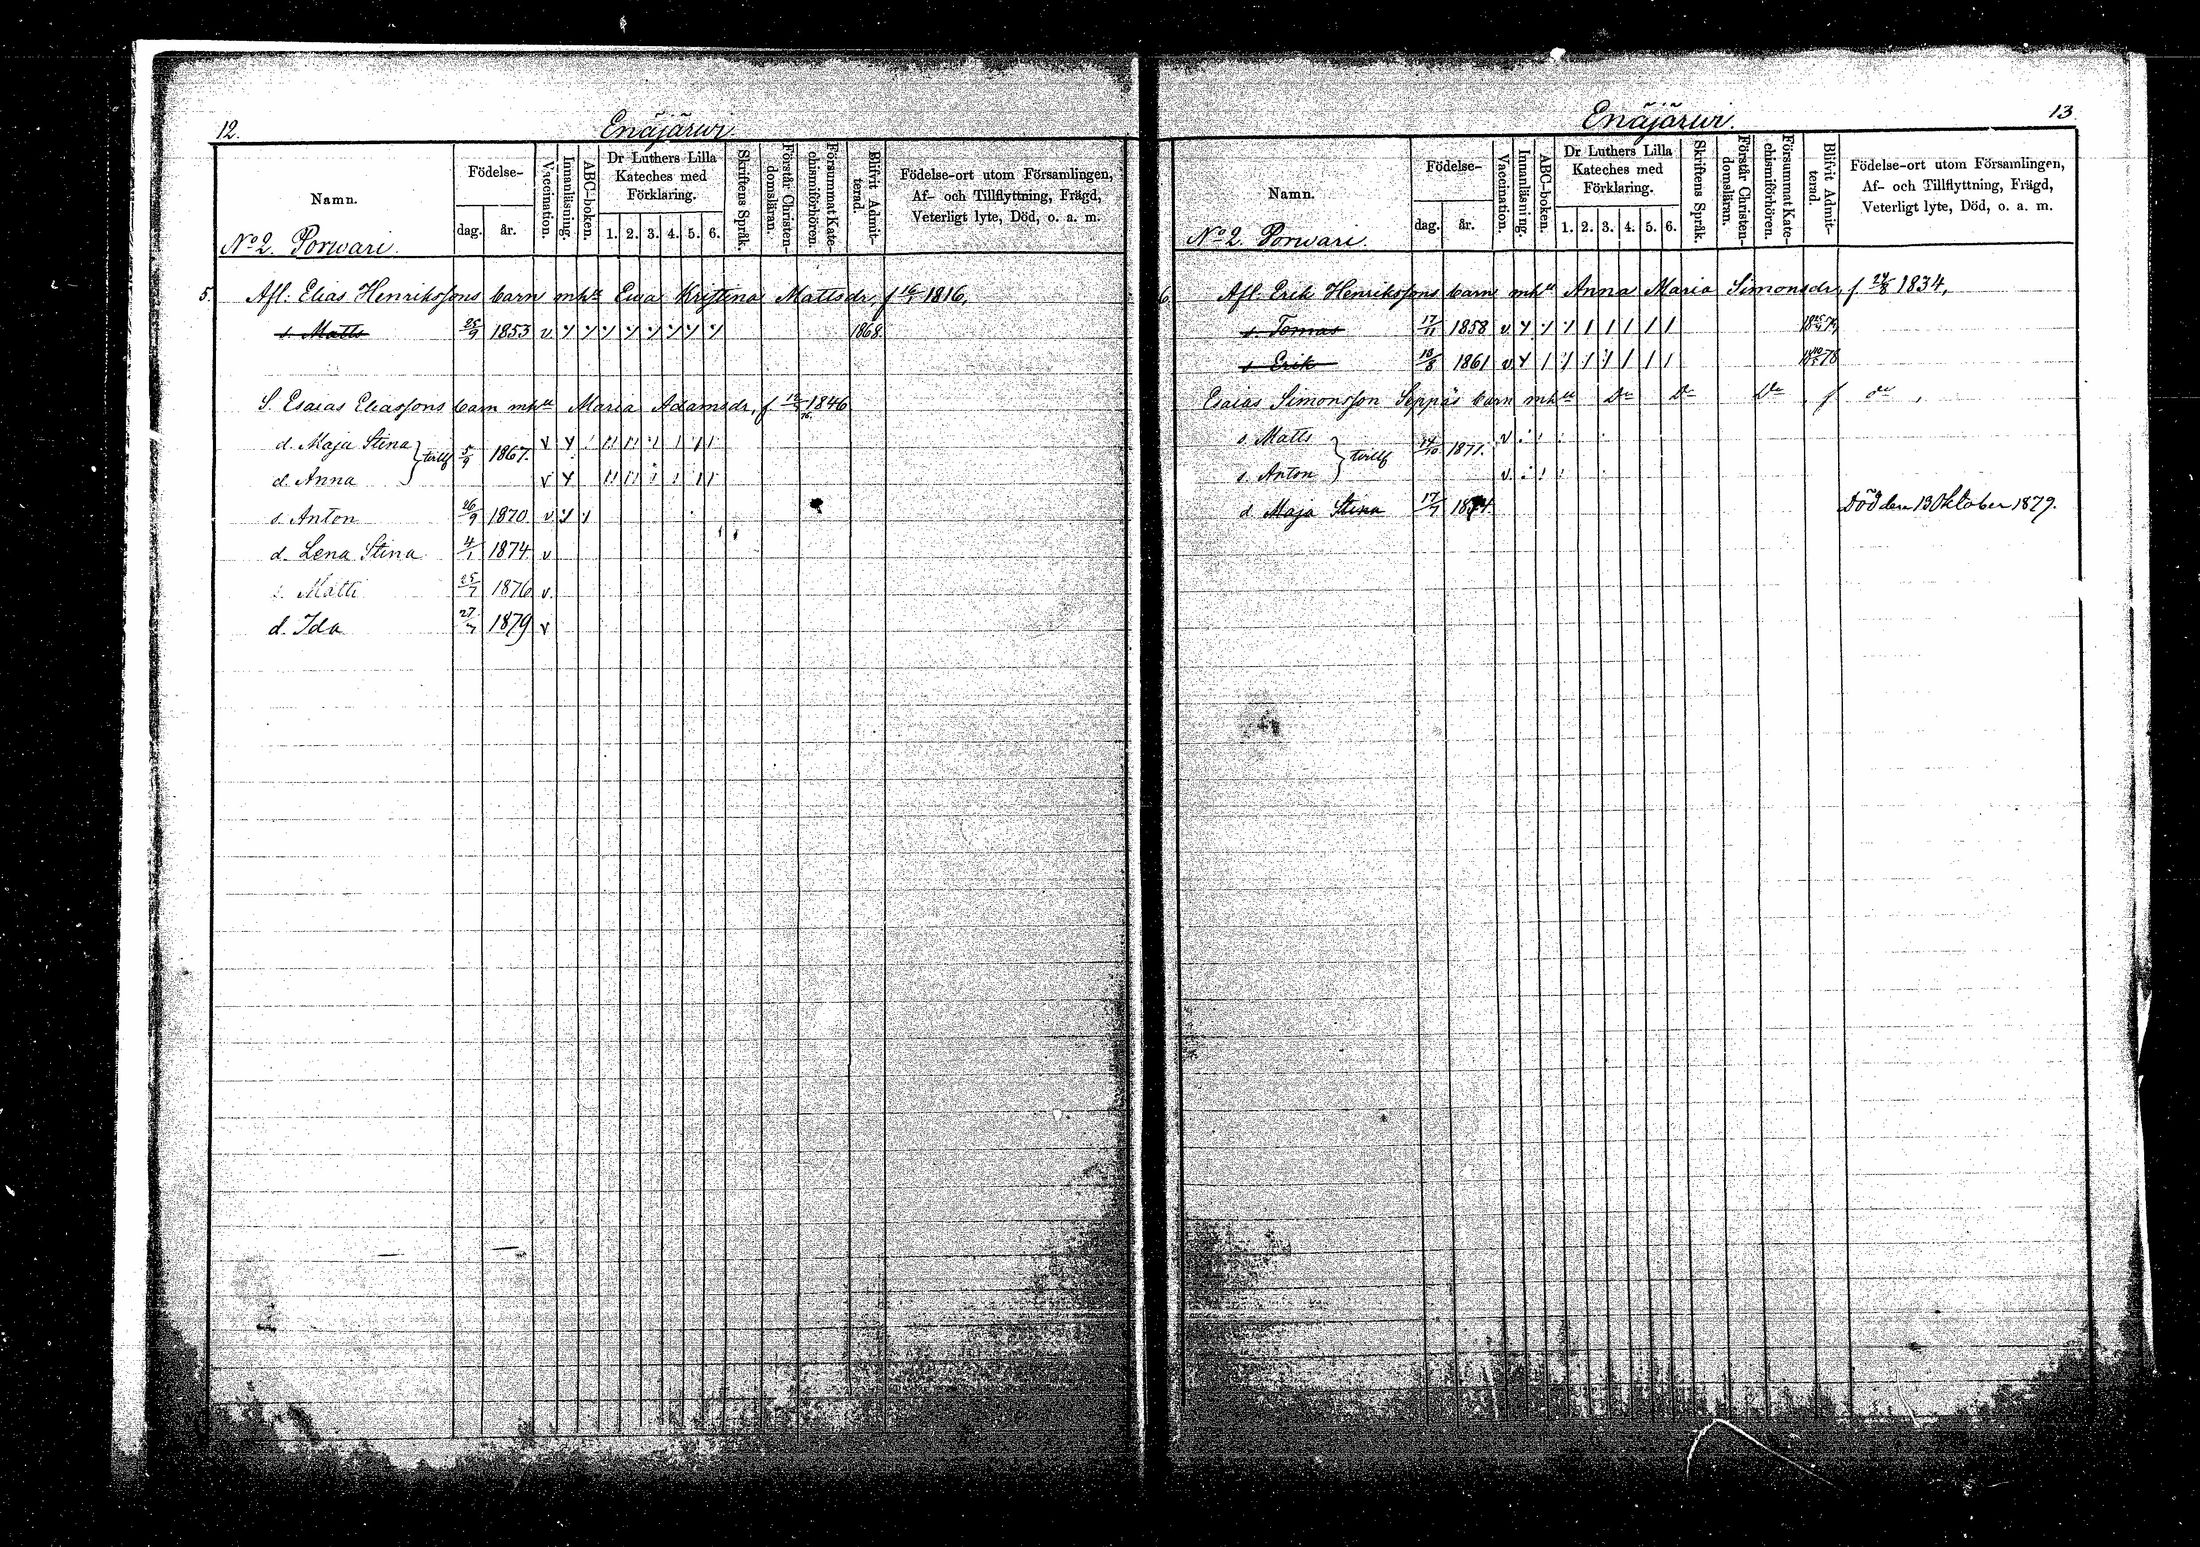 12.
Enäjärwi.
Namn.
Födelse-
dag.
år.
Vaccination.
Innanläsning.
ABC-boken.
Dr Luthers Lilla
Kateches med
Förklaring.
1. 2. 3. 4. 5. 6.
Skriftens Språk.
Förstår Christen-
domsläran.
Försummat Kate-
chismiförhören.
Blifvit Admit-
terad.
Födelse-ort utom Församlingen,
Af- och Tillflyttning, Frägd,
Veterligt lyte, Död, o. a. m.
No 2. Porwari.
5. Afl. Elias Henrikssons barn mhu Ewa Kristina Mattsdr, f 1816,
s. Matts 25/9 1853 v. 1868.
S. Esaias Eliassons barn mhu Maria Adamsdr, f. 1846
d. Maja Stina } tvill 5/9 1867. v
d. Anna v
s. Anton 26/9 1870 v
d. Lena Stina 4/1 1874 v
s. Matti 25/7 1876 v.
d. Ida 1879 v
13.
Enäjärwi.
Namn.
Födelse-
dag.
år.
Vaccination.
Innanläsning.
ABC-boken.
Dr Luthers Lilla
Kateches med
Förklaring.
1. 2. 3. 4. 5. 6.
Skriftens Språk.
Förstår Christen-
domsläran.
Försummat Kate-
chismiförhören.
Blifvit Admit-
terad.
Födelse-ort utom Församlingen,
Af- och Tillflyttning, Frägd,
Veterligt lyte, Död, o. a. m.
No 2. Porwari.
6. Afl. Erik Henrikssons barn mhu Anna Maria Simonsdr, f. 24/8 1834,
s. Tomas 17/11 1858 v.
s. Erik 10/8 1861 v
Esaias Simonsson Seppäs barn mhu Do Do Do f do,
s. Matts } tvill 14/10 1871. v
s. Anton v.
d. Maja Stina 17/7 1874. Död den 13 Oktober 1879.